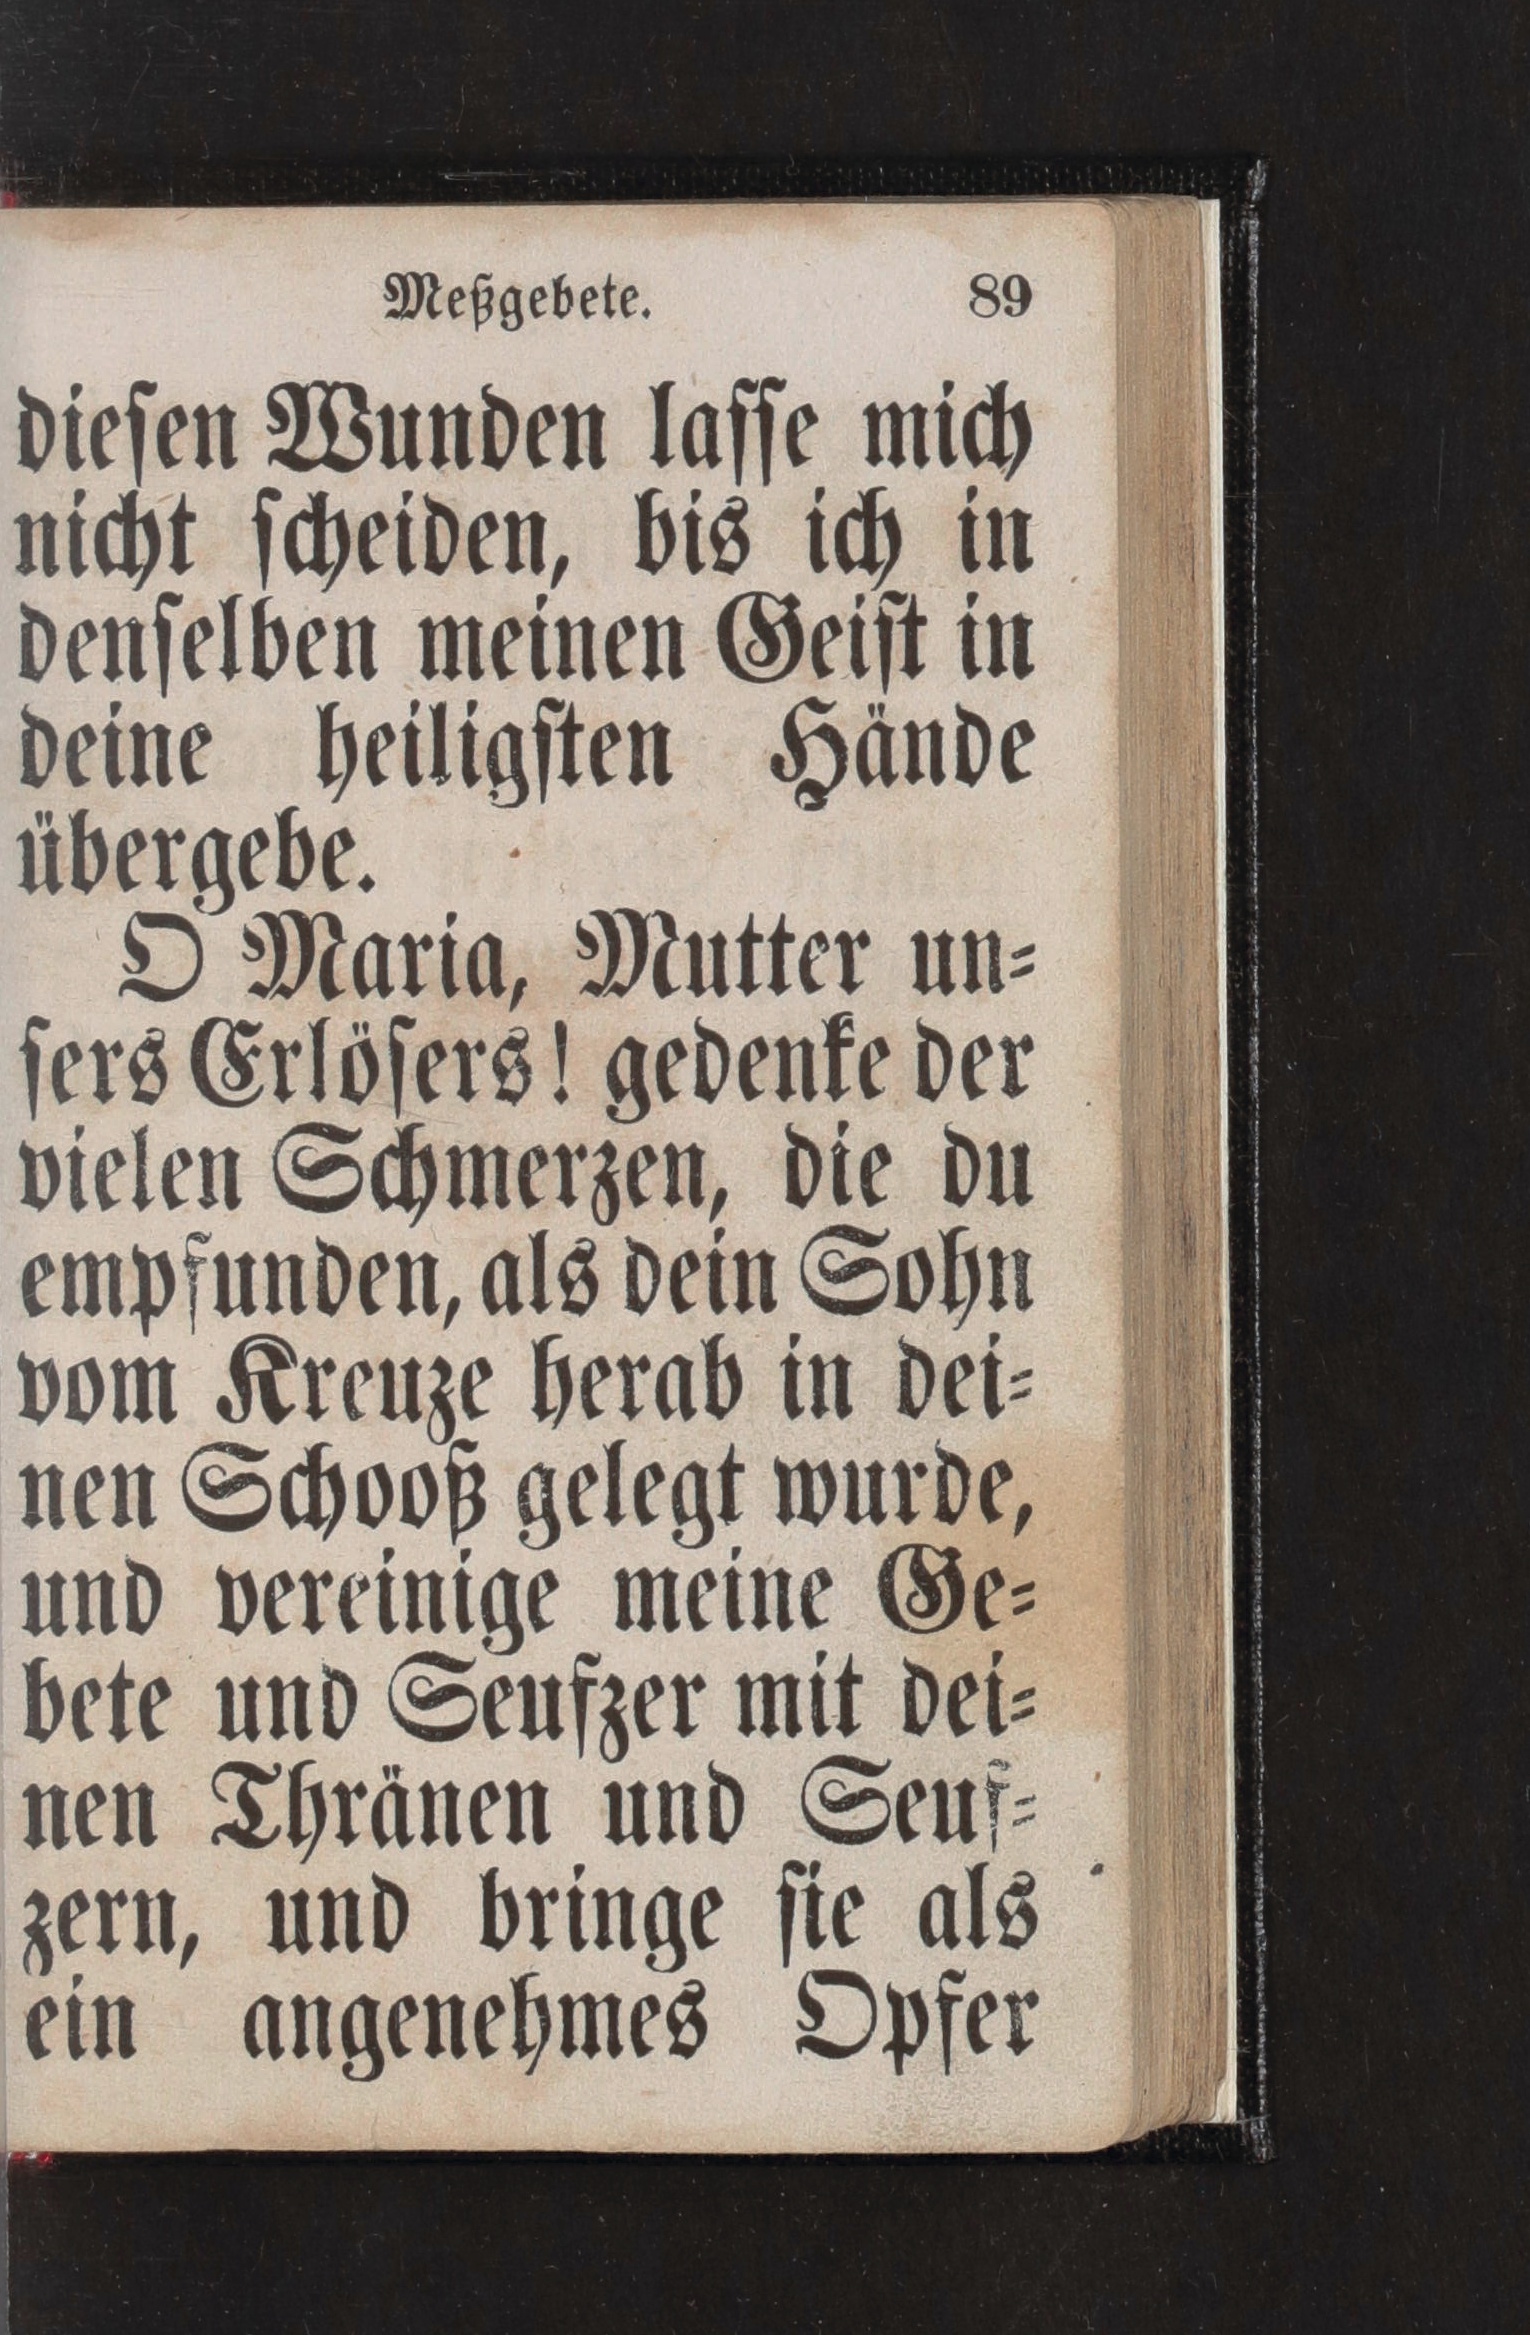 Meßgebete. 89
dieſen Wunden laſſe mich
nicht ſcheiden, bis ich in
denſelben meinen Geiſt in
deine heiligſten Hände
übergebe.
O Maria, Mutter un⸗
ſers Erlöſers! gedenke der
vielen Schmerzen, die du
empfunden, als dein Sohn
vom Kreuze herab in dei⸗
nen Schooß gelegt wurde,
und vereinige meine Ge⸗
bete und Seufzer mit dei⸗
nen Thränen und Seuf⸗
zern, und bringe ſie als
ein angenehmes Opfer